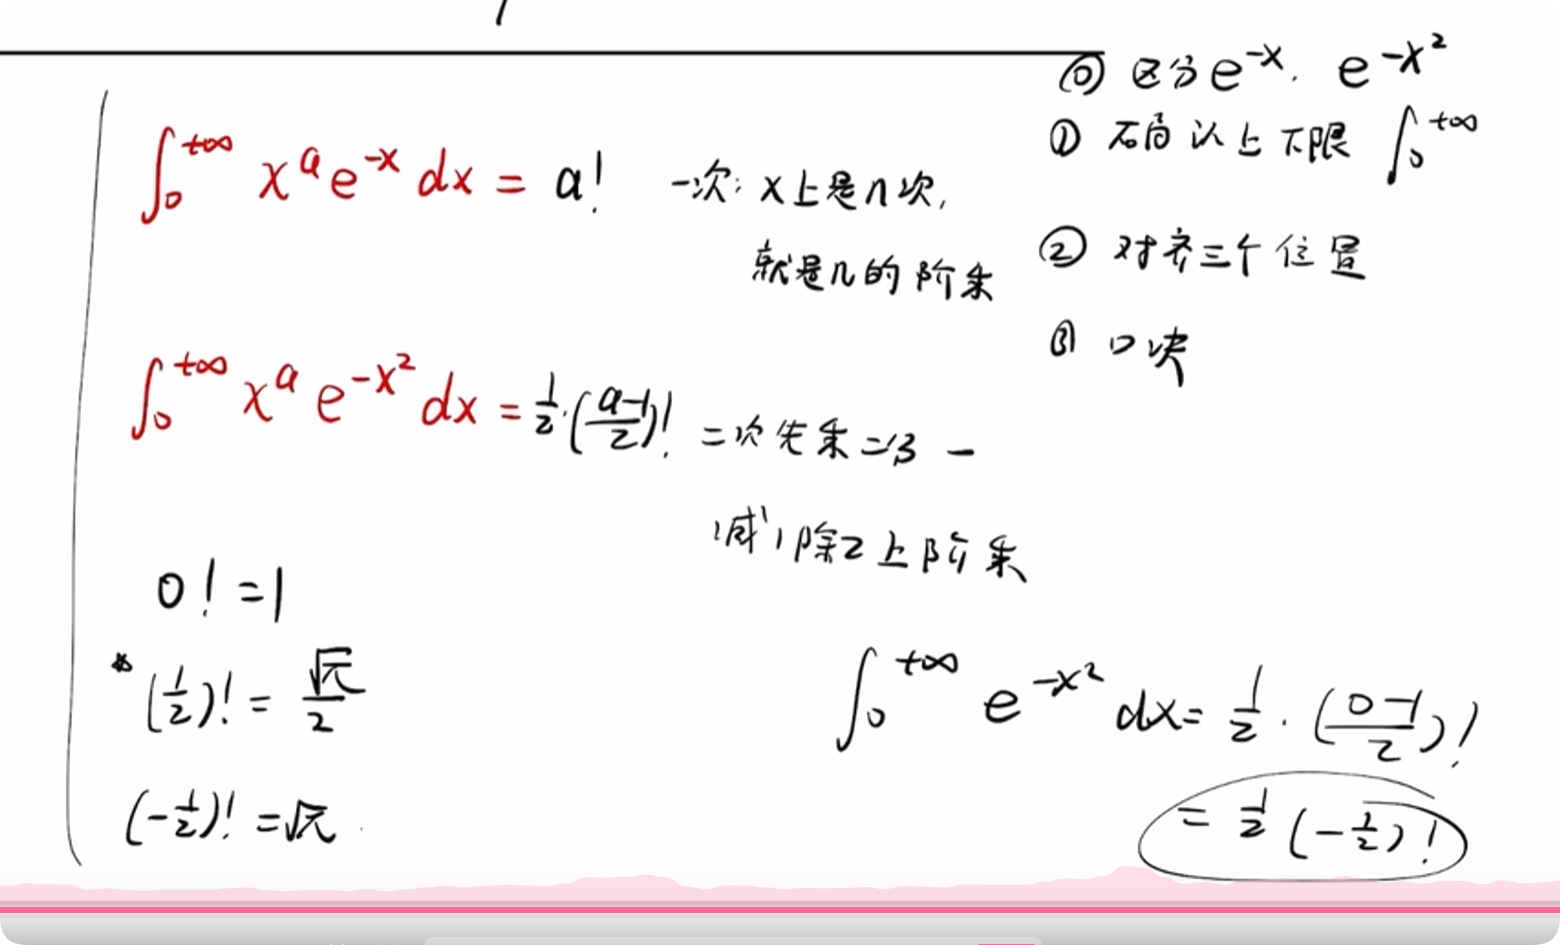 ∫₀^{+∞} x^a e^{-x} dx = a! 一次: x上是n次,
就是n的阶乘
∫₀^{+∞} x^a e^{-x²} dx = 1/2·((a-1)/2)! 二次先乘二分一
减1除2上阶乘
0! = 1
* (1/2)! = √π/2
(-1/2)! = √π
⓪ 区分 e^{-x}. e^{-x²}
① 石角认上下限 ∫₀^{+∞}
② 对齐三个位置
③ 口诀
∫₀^{+∞} e^{-x²} dx = 1/2·((0-1)/2)!
= 1/2 (-1/2)!